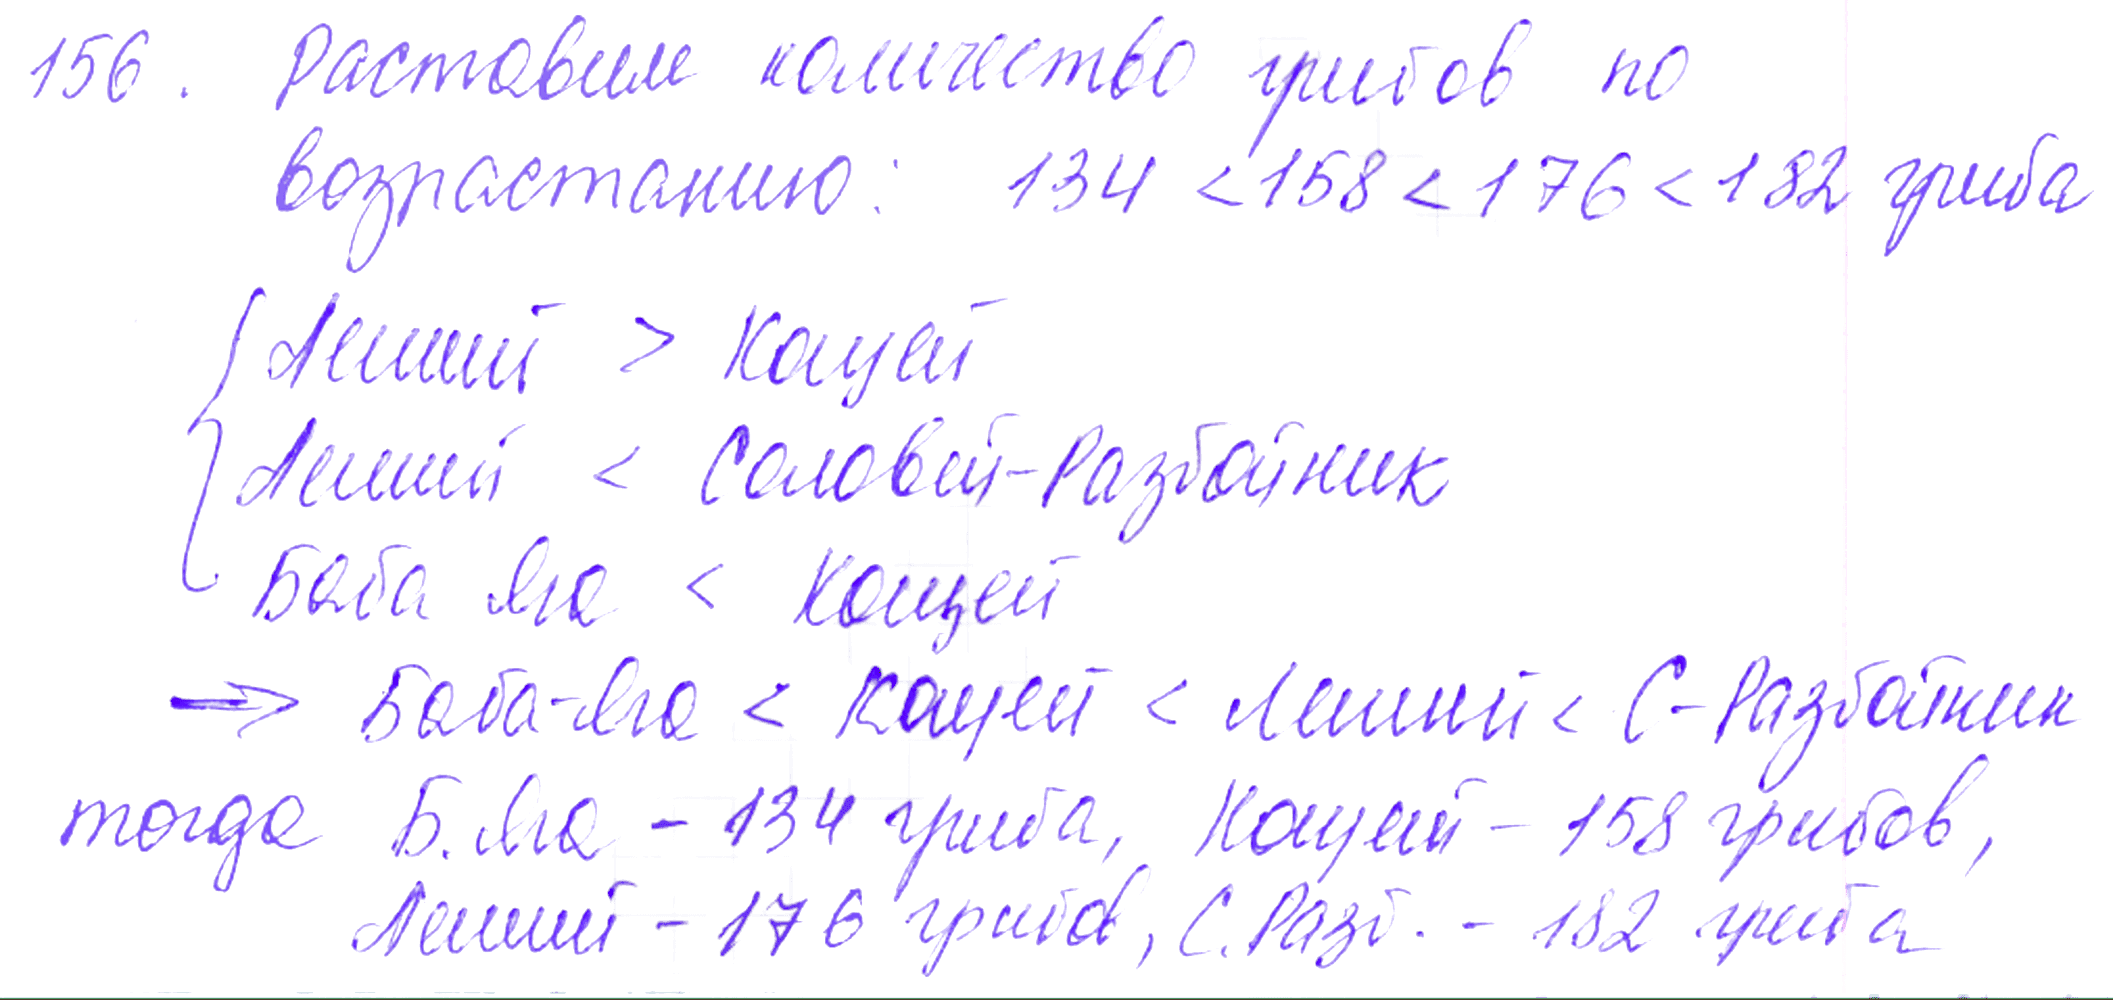 156. Раставим количество грибов по
возрастанию: 134 < 158 < 176 < 182 гриба
Леший > Кощей
Леший < Соловей-Разбойник
Баба Яга < Кощей
⇒ Баба-Яга < Кощей < Леший < С-Разбойник
тогда Б.Яга - 134 гриба, Кощей - 158 грибов,
Леший - 176 грибов, С.Разб. - 182 гриба